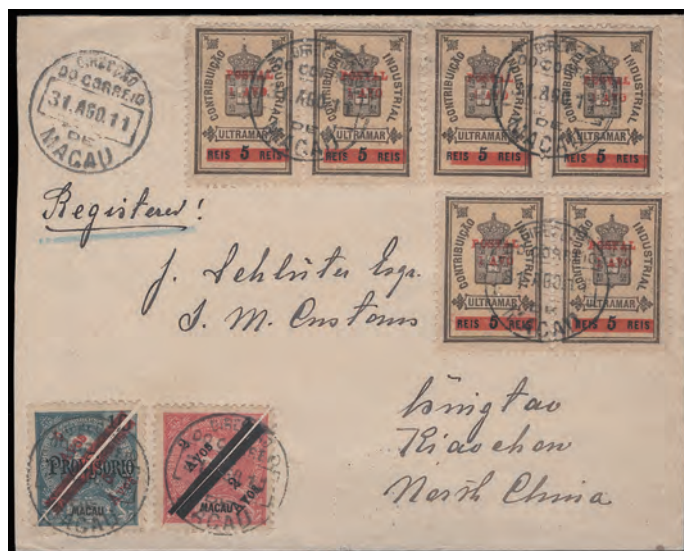 DIRECÇÃO
DO CORREIO
31.AGO.11
DE
MACAU
CONTRIBUIÇÃO INDUSTRIAL
POSTAL
1 AVO
ULTRAMAR
REIS 5 REIS
CONTRIBUIÇÃO INDUSTRIAL
POSTAL
1 AVO
ULTRAMAR
REIS 5 REIS
CONTRIBUIÇÃO INDUSTRIAL
POSTAL
1 AVO
ULTRAMAR
REIS 5 REIS
CONTRIBUIÇÃO INDUSTRIAL
POSTAL
1 AVO
ULTRAMAR
REIS 5 REIS
Registered!
J. Schlüter Esqr.
I. M. Customs
CONTRIBUIÇÃO INDUSTRIAL
POSTAL
1 AVO
ULTRAMAR
REIS 5 REIS
CONTRIBUIÇÃO INDUSTRIAL
POSTAL
1 AVO
ULTRAMAR
REIS 5 REIS
Tsingtao
Kiaochow
North China
PROVISORIO
MACAU
2 Avos
2 Avos
MACAU